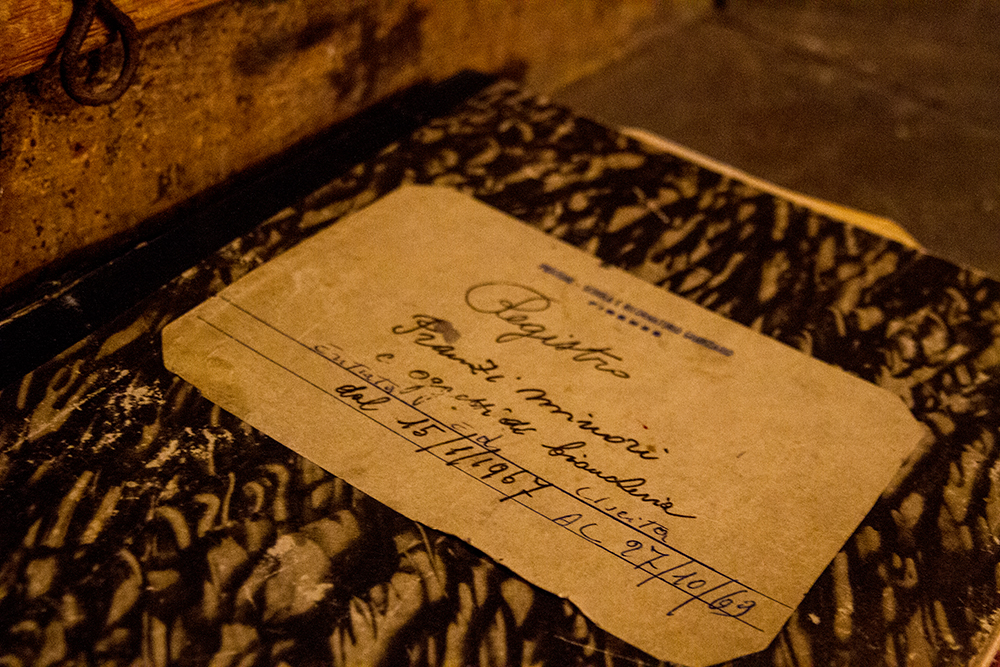 Registro
minori
e oggetti di biancheria
entrata ed Uscita
dal 15/1/1967 AL 27/10/69